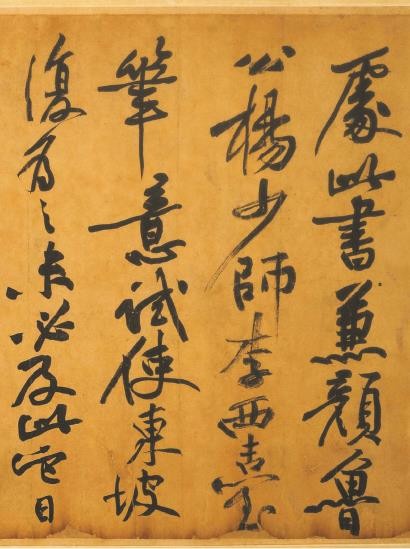 處此書兼顏魯
公楊少師李西臺
筆意試使東坡
復為之未必及此它日